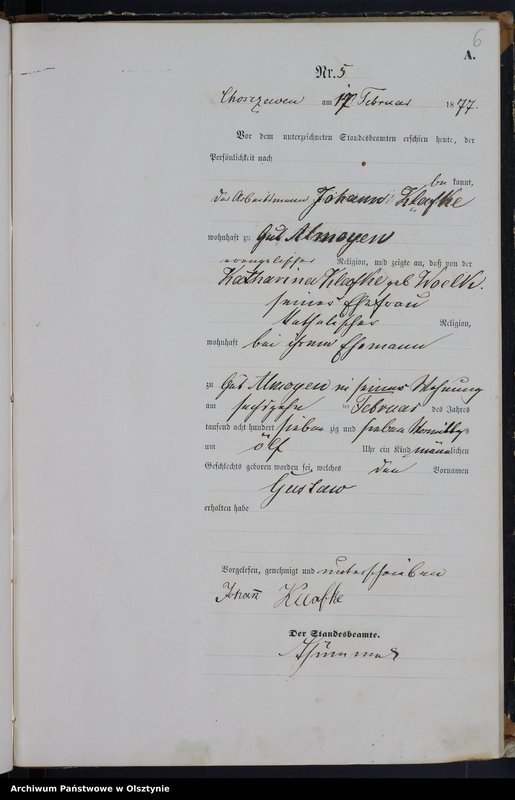 6
A.
Nr. 5
Choszewen am 17 Februar 1877.
Vor dem unterzeichneten Standesbeamten erschien heute, der
Persönlichkeit nach
be kannt,
der Arbeitsmann Johann Klafke
wohnhaft zu Gut Almoyen
evangelischer Religion, und zeigte an, daß von der
Katharina Klafke geb Woelk.
seiner Ehefrau
katholischer Religion,
wohnhaft bei ihrem Ehemann
zu Gut Almoyen in seiner Wohnung
am sechszehn ten Februar des Jahres
tausend acht hundert sieben zig und sieben Vormittags
um ölf Uhr ein Kind männlichen
Geschlechts geboren worden sei, welches den Vornamen
Gustaw
erhalten habe
Vorgelesen, genehmigt und unterschrieben
Johann Klafke
Der Standesbeamte.
Archiwum Państwowe w Olsztynie